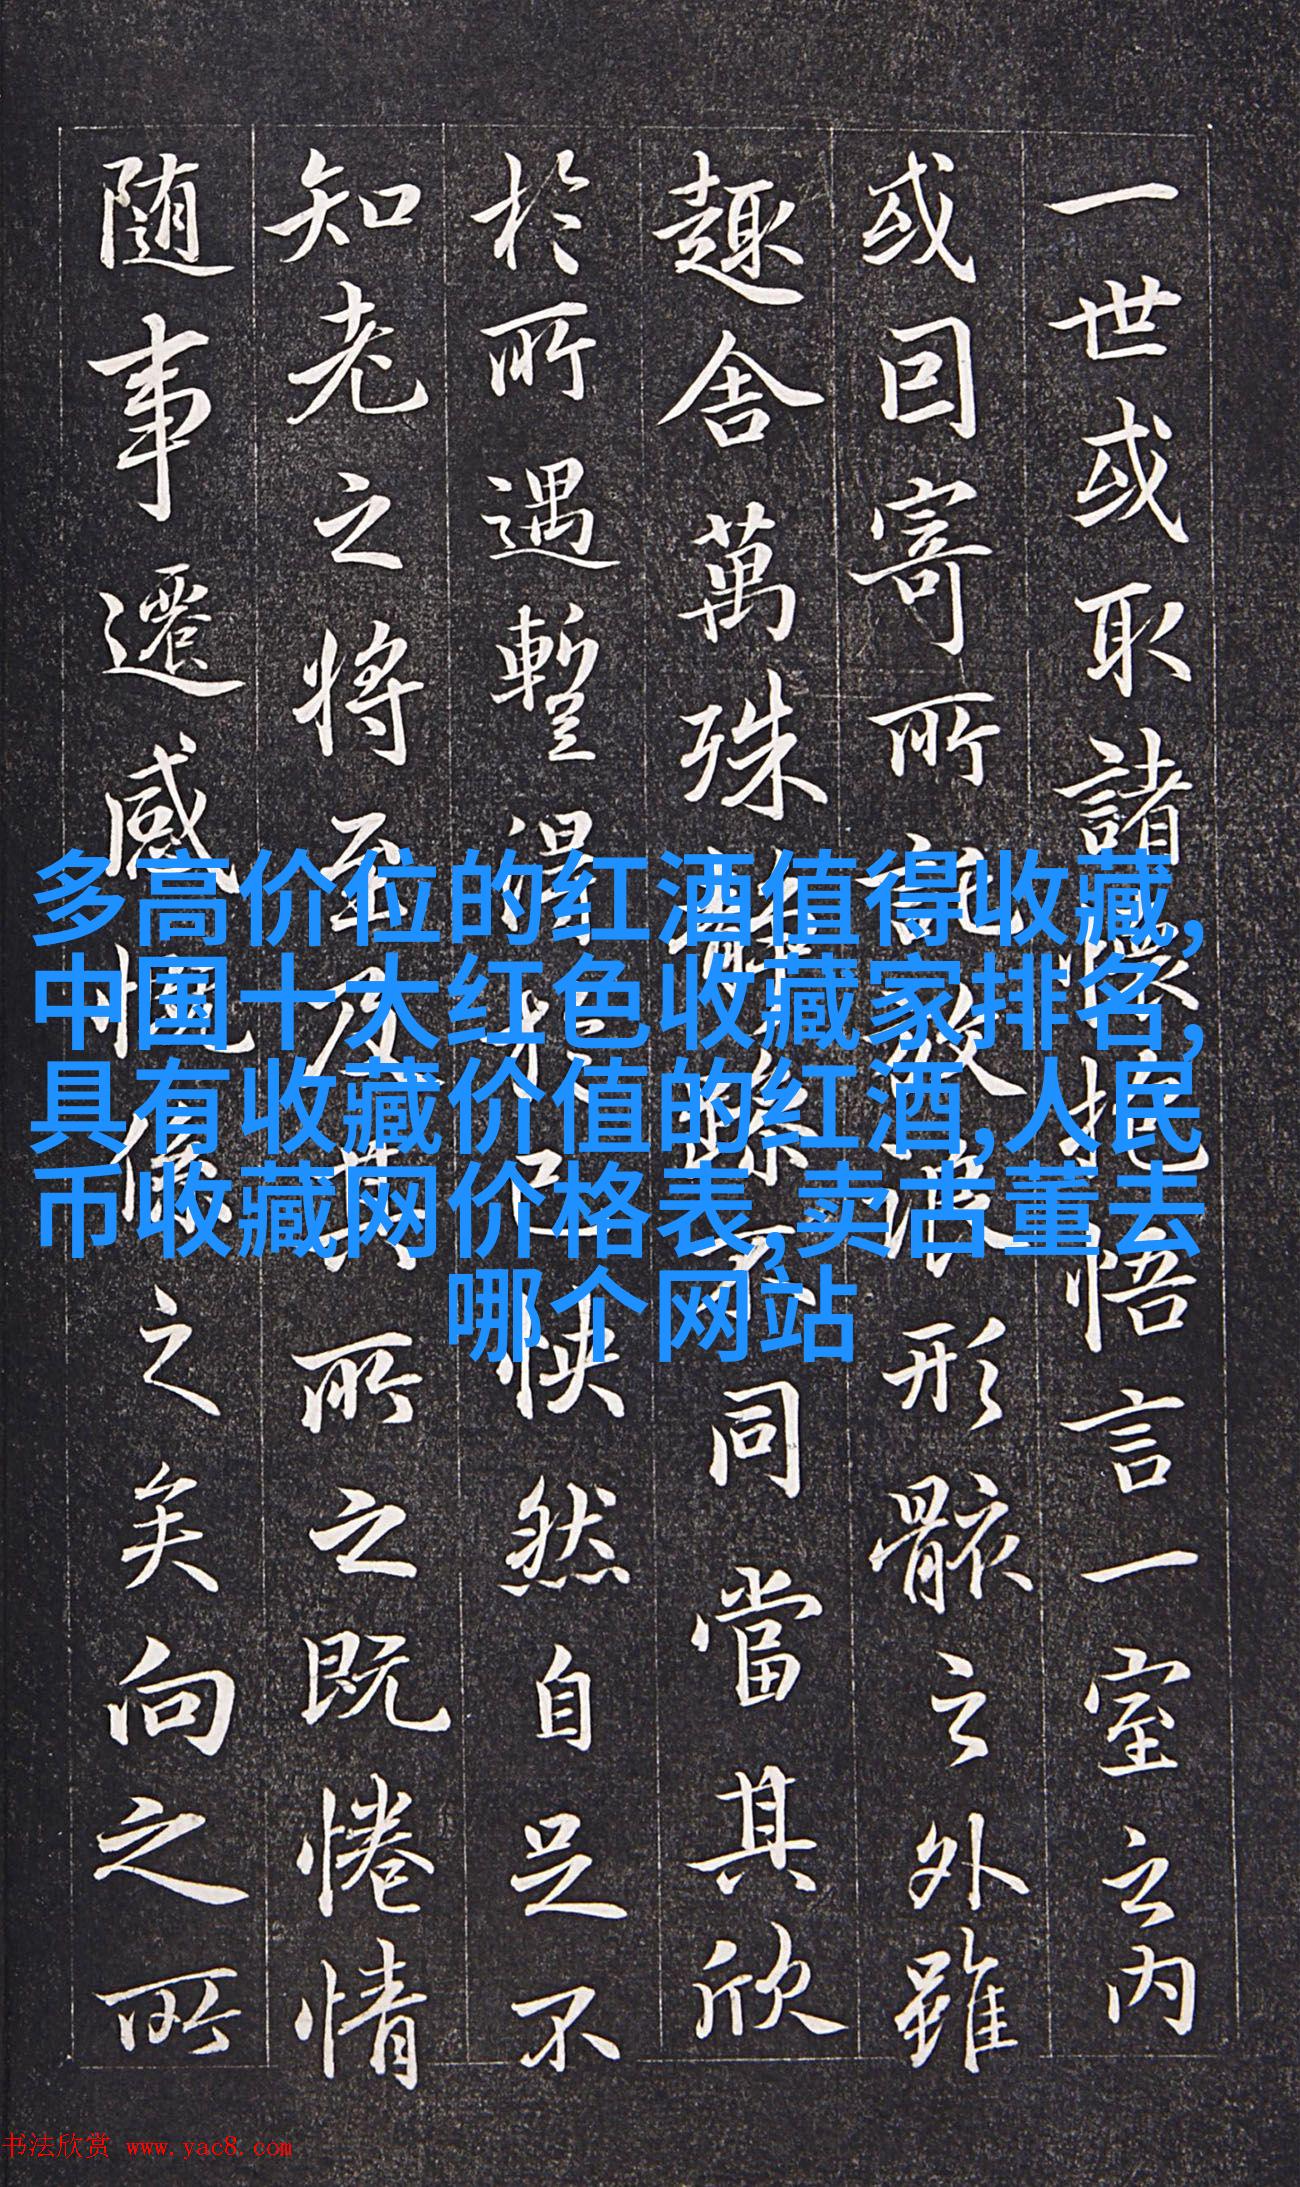 一世或取諸懷抱悟言一室之内
或因寄所託放浪形骸之外雖
趣舍萬殊静躁不同當其欣
於所遇暫得於己快然自足不
知老之将至及其所之既惓情
随事遷感慨係之矣向之所
多高价位的红酒值得收藏,
中国十大红色收藏家排名,
具有收藏价值的红酒,人民
币收藏网价格表,卖古董去
哪个网站
书法欣赏 www.yac8.com